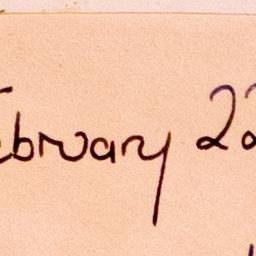 February 22